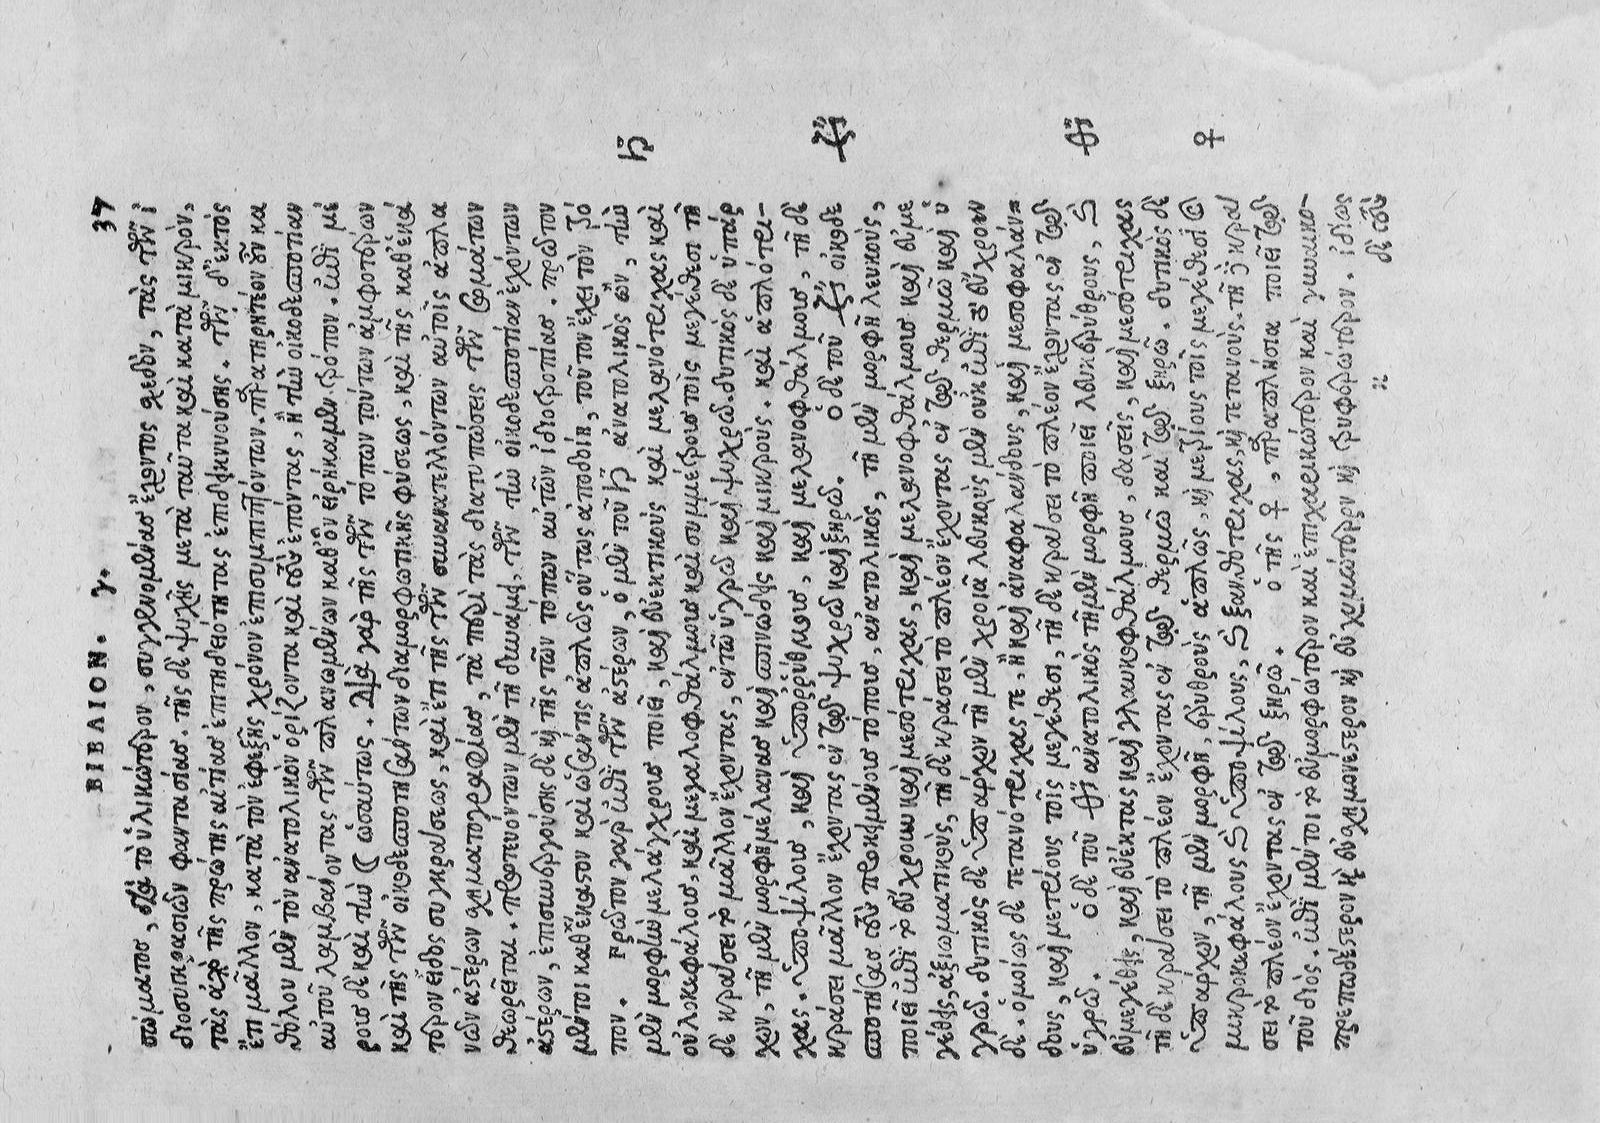 ΒΙΒΛΙΟΝ. γ. 37
σώματος, διὰ τὸ ὑλικώτερον, συγγενομένας ἔχοντος σχεδὸν, τὰς τῶν ἰ
διοσυγκρασιῶν φαντασίας. τῆς δὲ ψυχῆς μετὰ ταῦτα καὶ κατὰ μικρὸν,
τὰς ἀπὸ τῆς πρώτης αἰτίας ἐπιτηδειότητας ἐπιδεικνυούσης. τῶν δ' ἐκτὸς
ἔτι μᾶλλον, κατὰ τὸν ἐφεξῆς χρόνον ἐπισυμπιπτόντων. παρατηρητέον οὖν κα
θόλου μὲν τὸν ἀνατολικὸν ὁρίζοντα καὶ τοὺς ἐπόντας, ἢ τὴν οἰκοδεσποτίαν
αὐτοῦ λαμβάνοντας τῶν πλανωμένων καθ' ὃν εἰρήκαμεν τρόπον. ἐπὶ μέ
ρους δὲ καὶ τὴν ☽ ὡσαύτως. διὰ γὰρ τῆς τῶν τόπων τούτων ἀμφοτέρων
καὶ τῆς τῶν οἰκοδεσποτησάντων διαμορφωτικῆς φύσεως, καὶ τῆς καθ' ἑκά
τερον εἶδος συγκράσεως, καὶ ἔτι τῆς τῶν συνανατελλόντων αὐτοῖς ἀπλα
νῶν ἀστέρων σχηματογραφίας, τὰ περὶ τὰς διατυπώσεις τῶν σωμάτων
θεωρεῖται. πρωτευόντων μὲν τῇ δυνάμει, τῶν τὴν οἰκοδεσποτίαν ἐχόντων
ἀστέρων, ἐπισυνεργούσης δὲ καὶ τῆς τῶν τόπων αὐτῶν ἰδιοτροπίας. πρῶτον
μέντοι καθ' ἕκαστον καὶ ὡς ἄν τις ἁπλῶς οὕτως ἀποδοίη, τοῦτον ἔχει τὸν τρό
πον. πρῶτον γὰρ ἐπὶ τῶν ἀστέρων, ὁ μὲν τοῦ ♄ ἀνατολικὸς ὢν, τὴν ♄
μὲν μορφὴν μελάγχρους ποιεῖ, καὶ εὐεκτικοὺς καὶ μελανότριχας καὶ
οὐλοκεφάλους, καὶ μεγαλοφθάλμους καὶ συμμέτρους τοῖς μεγέθεσι τῇ
δὲ κράσει τὸ μᾶλλον ἔχοντας, ἐν τῷ ὑγρῷ καὶ ψυχρῷ. δυτικὸς δὲ ὑπάρ
χων, τῇ μὲν μορφῇ μέλανας καὶ σπινώδεις καὶ μικροὺς. καὶ ἁπλότρι-
χας. ὑποψίλους, καὶ ὑπορρύθμους, καὶ μελανοφθάλμους, τῇ δὲ
κράσει μᾶλλον ἔχοντας ἐν τῷ ψυχρῷ καὶ ξηρῷ. ὁ δὲ τοῦ ♃ οἰκοδε ♃
σποτήσας τοὺς προκειμένους τόπους, ἀνατολικὸς, τῇ μὲν μορφῇ λευκοὺς,
ποιεῖ ἐπὶ τὸ εὔχρουν καὶ μεσότριχας, καὶ μελανοφθάλμους καὶ εὐμε
γέθεις, ἀξιωματικοὺς, τῇ δὲ κράσει τὸ πλέον ἔχοντας ἐν τῷ θερμῷ καὶ ὑ
γρῷ. δυτικὸς δὲ ὑπάρχων τῇ μὲν χροίᾳ λευκοὺς μὲν οὐκ ἐπὶ τὸ εὔχρουν
δὲ. ὁμοίως δὲ τετανότριχάς τε ἢ καὶ ἀναφαλάνδους, καὶ μεσοφαλάκ
ρους, καὶ μετρίους τοῖς μεγέθεσι, τῇ δὲ κράσει τὸ πλεῖον ἔχοντας ἐν τῷ
ὑγρῷ. ὁ δὲ τοῦ ♂ ἀνατολικὸς τῇ μὲν μορφῇ ποιεῖ λευκερύθρους, καὶ ♂
εὐμεγέθεις, καὶ εὐέκτας καὶ γλαυκοφθάλμους, δασεῖς, καὶ μεσότριχας
τῇ δὲ κράσει τὸ πλέον ἔχοντας ἐν τῷ θερμῷ καὶ τῷ ξηρῷ. δυτικὸς δὲ
ὑπάρχων, τῇ μὲν μορφῇ, ἐρυθροὺς ἁπλῶς, καὶ τοῖς μεγέθεσι
μικροκεφάλους καὶ ὑποψίλους, καὶ ξανθότριχας, καὶ τετανοὺς. τῇ δὲ κρά
σει τὸ πλέον ἔχοντας ἐν τῷ ξηρῷ. ὁ τῆς ♀, παραπλήσια ποιεῖ τῷ ♀
τοῦ διὸς. ἐπὶ μέντοι τὸ εὐμορφώτερον καὶ ἐπιχαριτώτερον καὶ γυναικο-
πρεπωδέστερον καὶ εὐσχημονέστερον καὶ εὐχυμώτερον καὶ τρυφερώτερον. ἰδίως
δὲ τοὺς